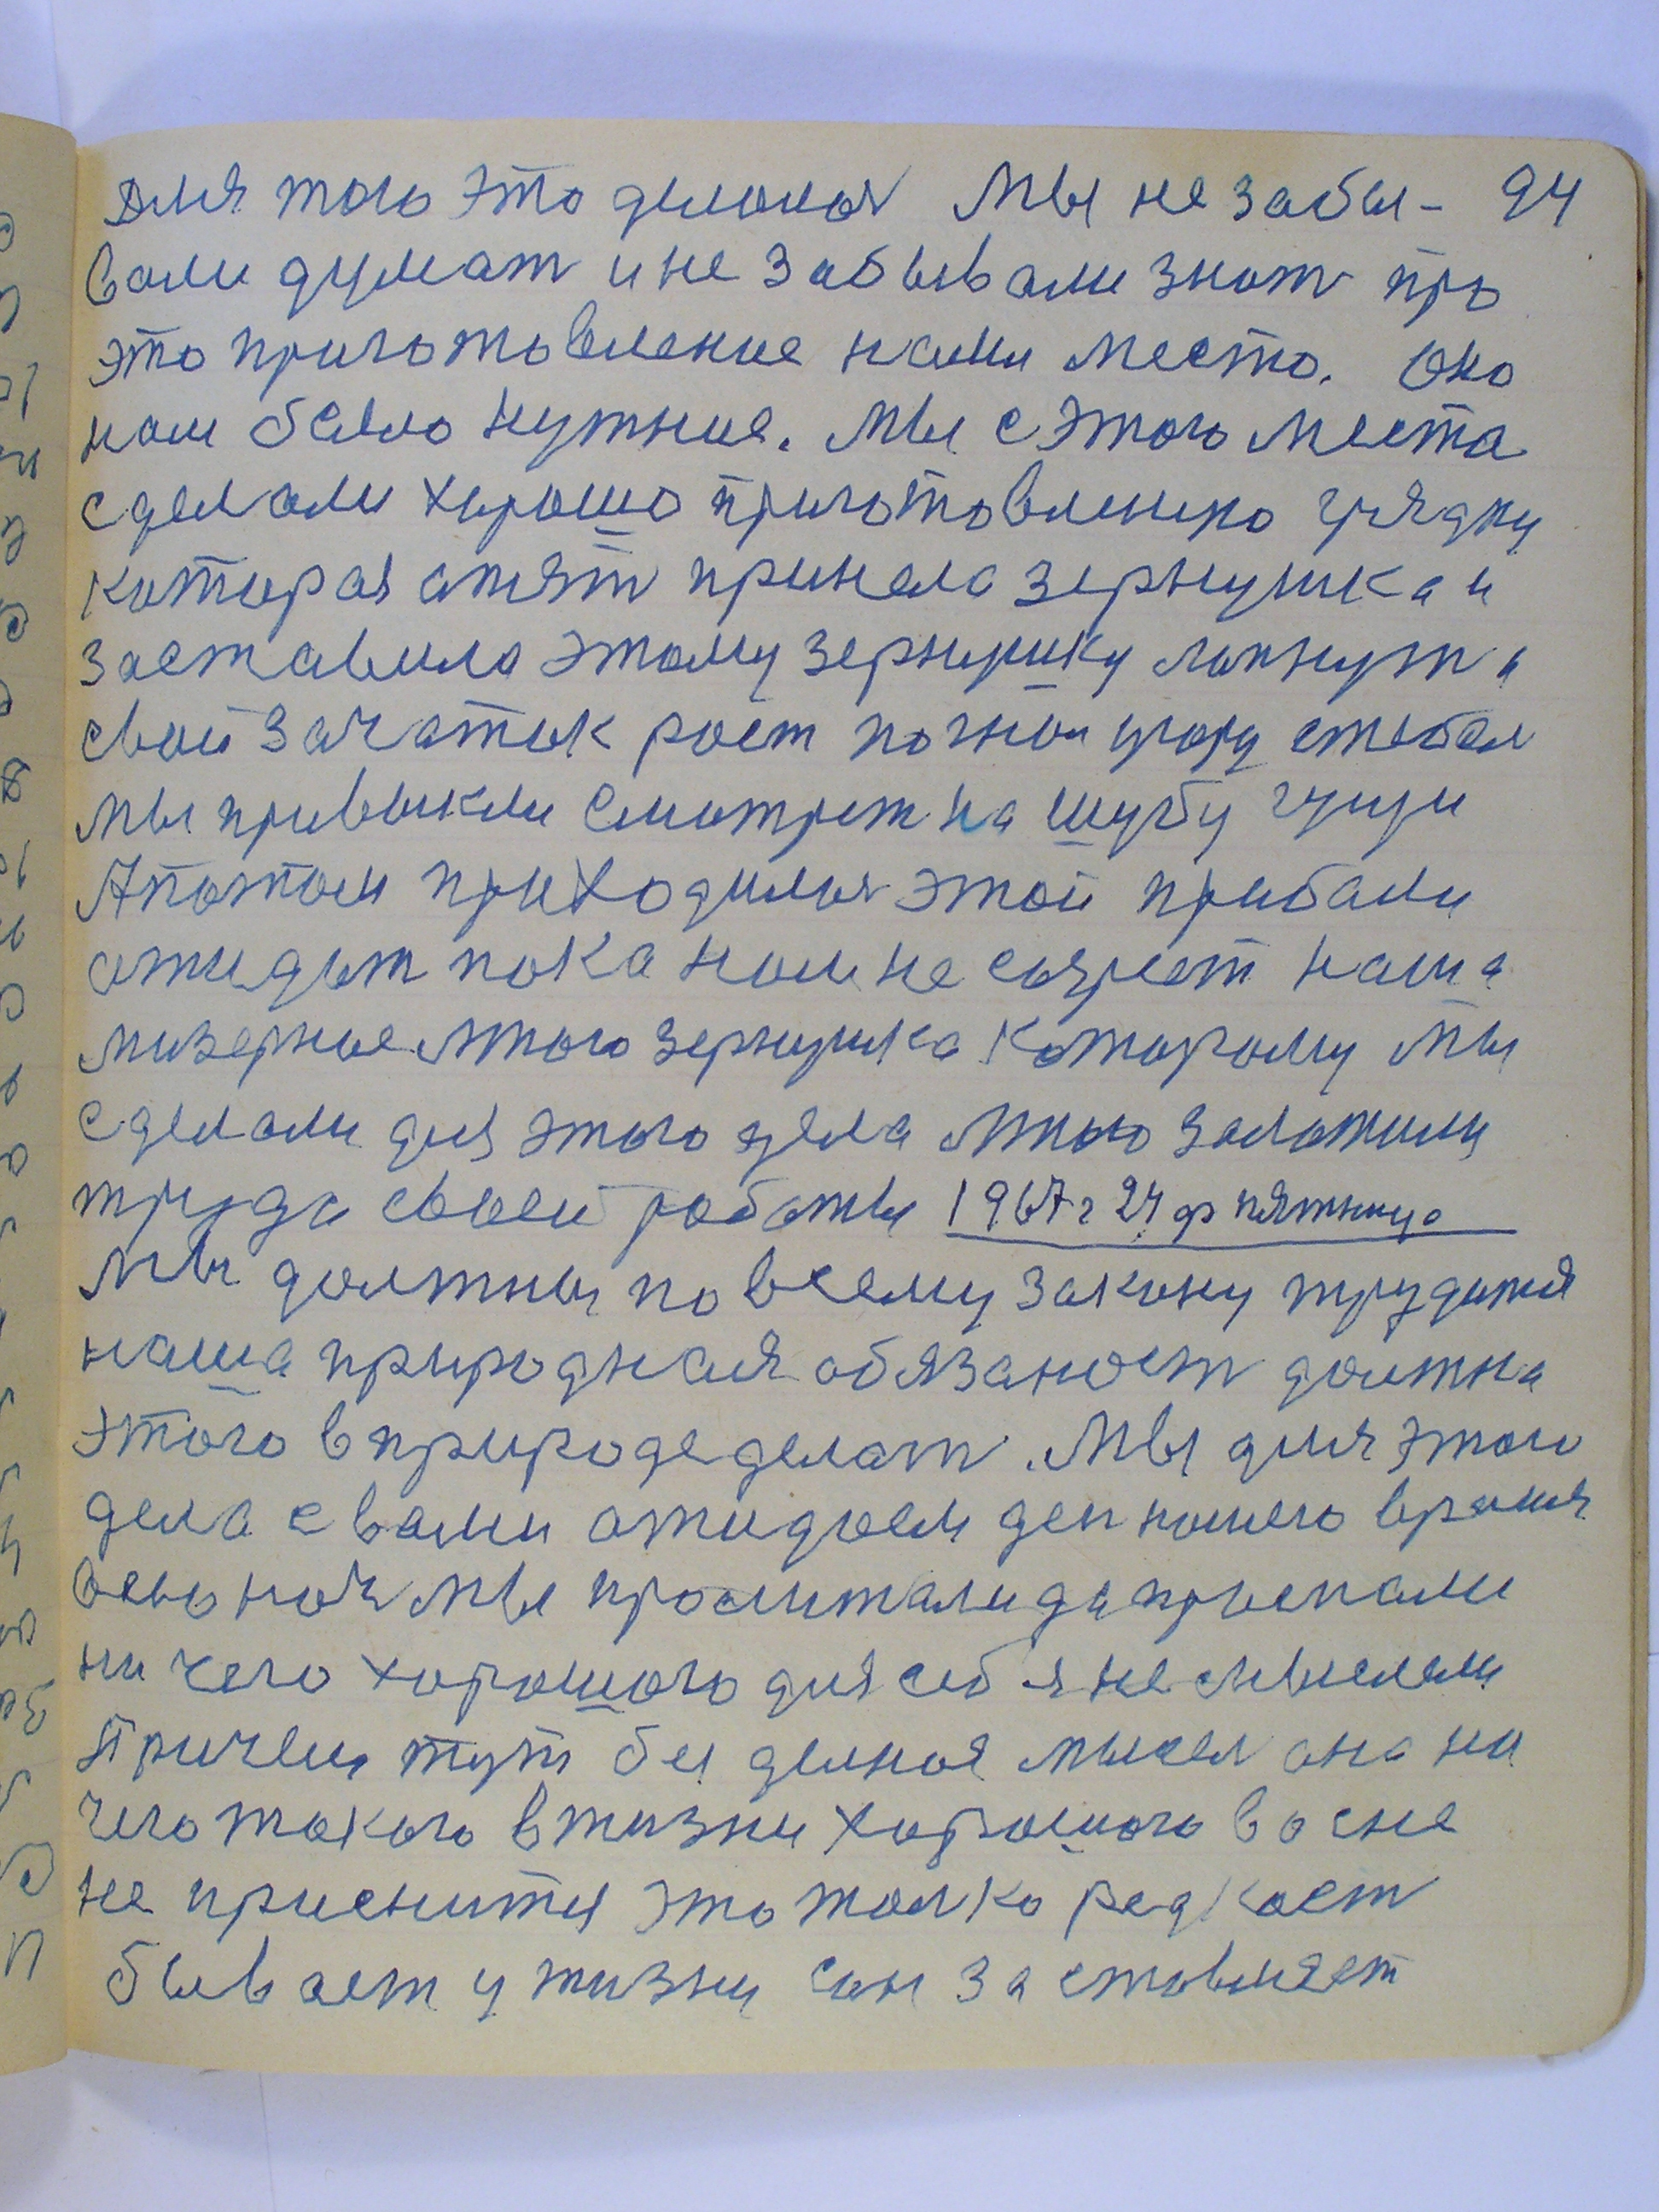 Для того это делолоя Мы не забы- 94
вали думат и не забывали знат про
это приготовление нами место. Оно
нам было нужние. Мы с этого места
сделали хорошо приготовленую грядку
которая опят принела зернушка и
заставила этому зернушку лопнут и
свой зачаток роет погнал угору стебел
Мы привыкли Смотрет на шубу гущи
А потом приходилоя этой прибали
ожидат пока нам не созреет наша
мизерное много зернушка которому мы
сделали для этого дела много заложили
труда своей работы 1967 г 24 ф пятница
Мы должны по всему закону трудится
наша природная обязаност должна
этого в природе делат. Мы для этого
дела с вами ожидаем ден нашего время
всю ноч мы проситали да проспали
ни чего хорошого для себя не
Причем тут бы делная мысел она ни
чего такого в жизни хорошого во сне
не приснится это толко редкост
бывает у жизни сон заставляет